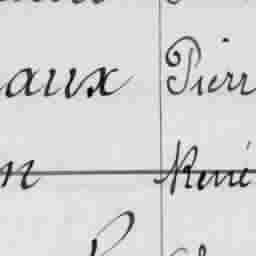 aux Pierr
n René